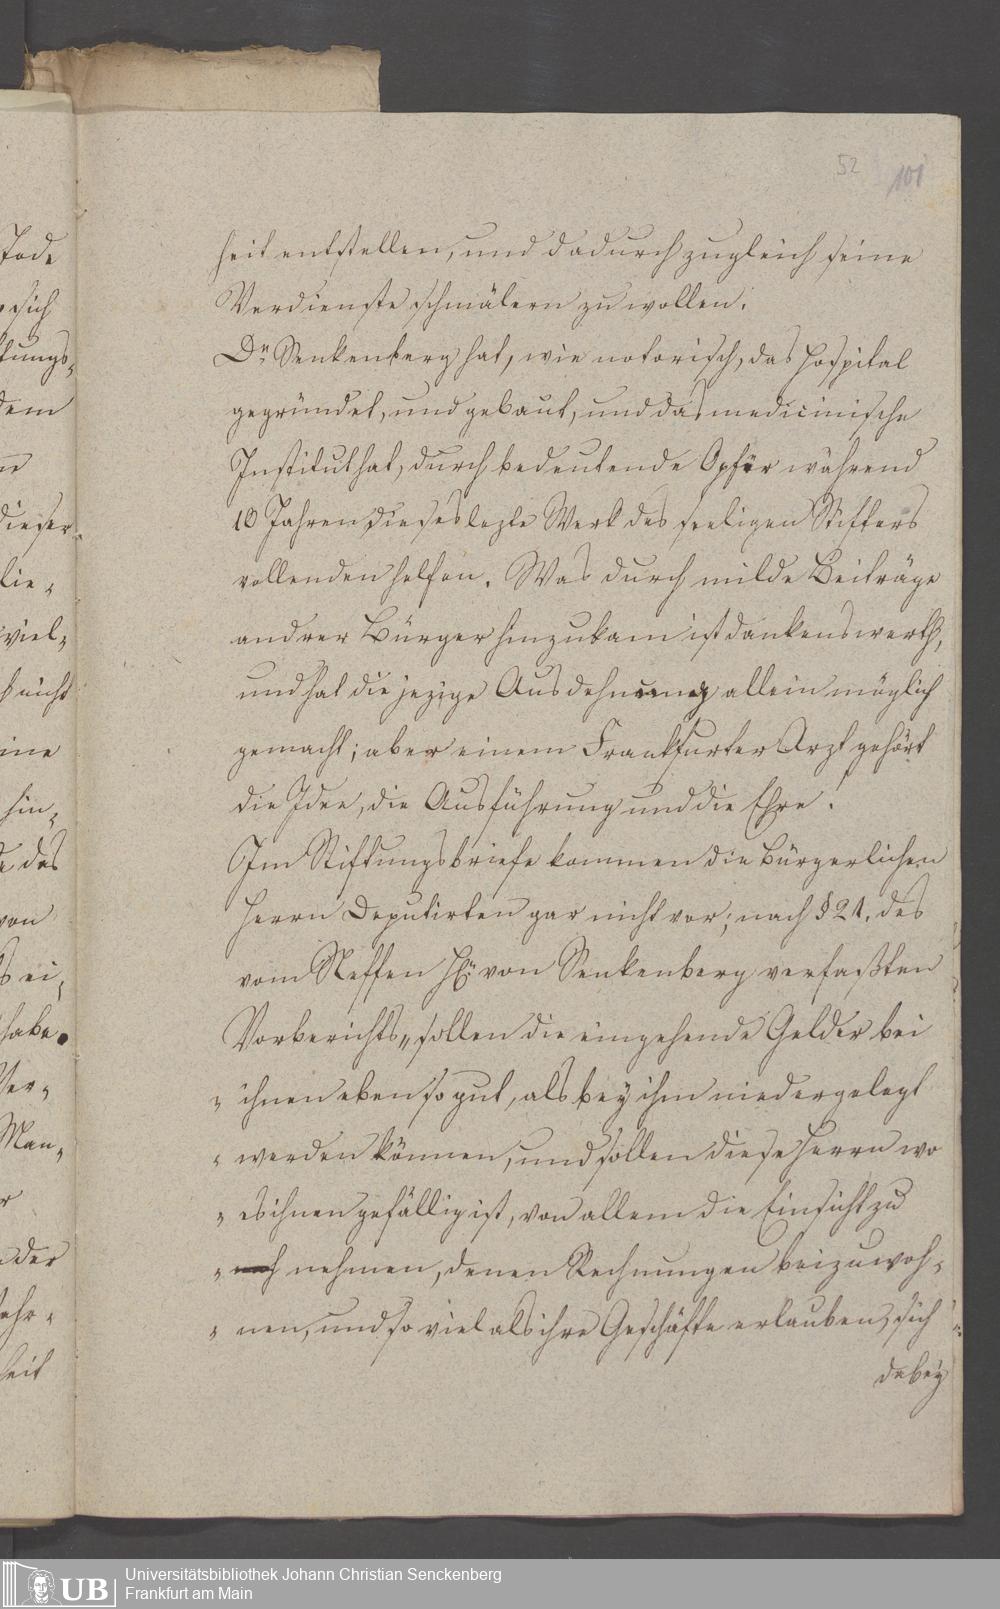 52 101
heit entstellen, und dadurch zugleich seine
Verdienste schmälern zu wollen.
Dr. Senkenberg hat, wie notorisch, das Hospital
gegründet, und gebaut, und das medicinische
Institut hat, durch bedeutende Opfer während
10 Jahren dieses lezte Werk des seeligen Stifters
vollenden helfen. Was durch milde Beiträge
andrer Bürger hinzukam ist dankenswerth,
und hat die jezige Ausdehnung allein möglich
gemacht; aber einem Frankfurter Arzt gehört
die Idee, die Ausführung und die Ehre!
Im Stiftungsbriefe kommen die bürgerlichen
Herrn Deputirten gar nicht vor; nach § 21. des
vom Neffen H: von Senkenberg verfaßten
Vorberichts „sollen die eingehende Gelder bei
„ ihnen eben so gut, als bey ihm niedergelegt
„ werden können, und sollen diese Herrn wo
„ es ihnen gefällig ist, von allem die Einsicht zu
„ nehmen, denen Rechnungen beizuwoh-
„ nen, und so viel als ihre Geschäfte erlauben, sich
dabey
Tode
sich
tungs-
dem
dieser
lie-
viel-
nicht
ine
hin-
des
von
ei-
habe.
Ver-
Man-
der
ahr-
heit
UB Universitätsbibliothek Johann Christian Senckenberg
Frankfurt am Main